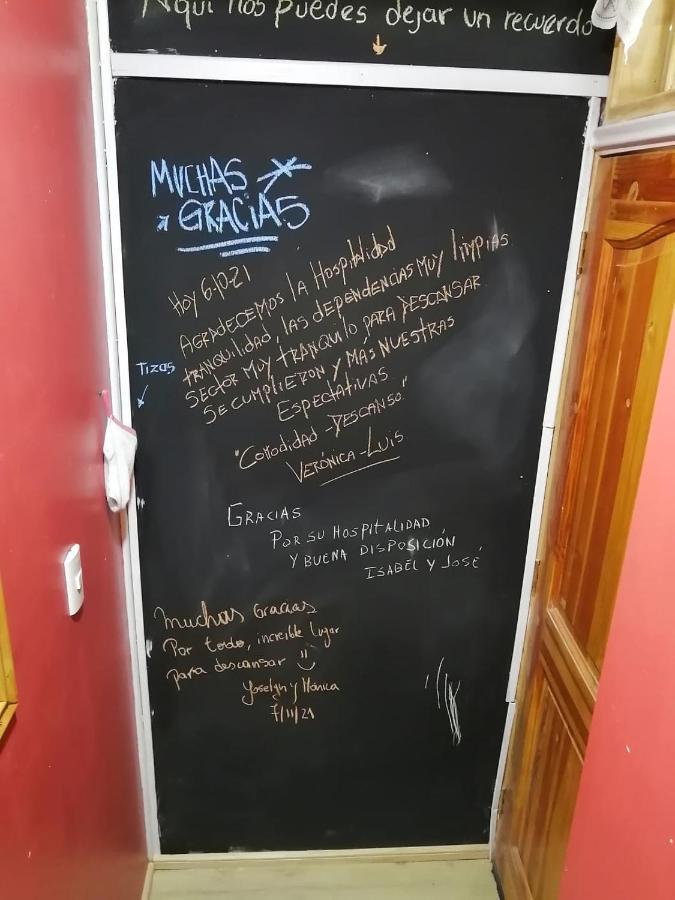 Aquí nos puedes dejar un recuerdo
MUCHAS
GRACIAS
Hoy 6-10-21
AGRADECEMOS LA HOSPITALIDAD
TRANQUILIDAD, LAS DEPENDENCIAS MUY LIMPIAS
SECTOR MUY TRANQUILO PARA DESCANSAR
SE CUMPLIERON Y MAS NUESTRAS
ESPECTATIVAS
"COMODIDAD - DESCANSO."
VERÓNICA - LUIS
Tizas
GRACIAS
POR SU HOSPITALIDAD
Y BUENA DISPOSICIÓN
ISABEL Y JOSÉ
Muchas Gracias
Por todo, increíble lugar
para descansar
Joselyn y Mónica
7/11/21